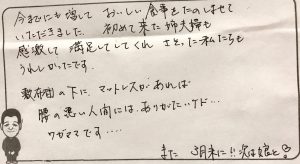 今までにも増して おいしい食事をたのしませて
いただきました。 初めて来た姉夫婦も
感激して 満足してしてくれ さそった私たちも
うれしかったです。
敷布団の下に マットレスがあれば
腰の悪い人間には、ありがたいケド…
ワガママです‥‥
また 3月末に!! 次は娘と